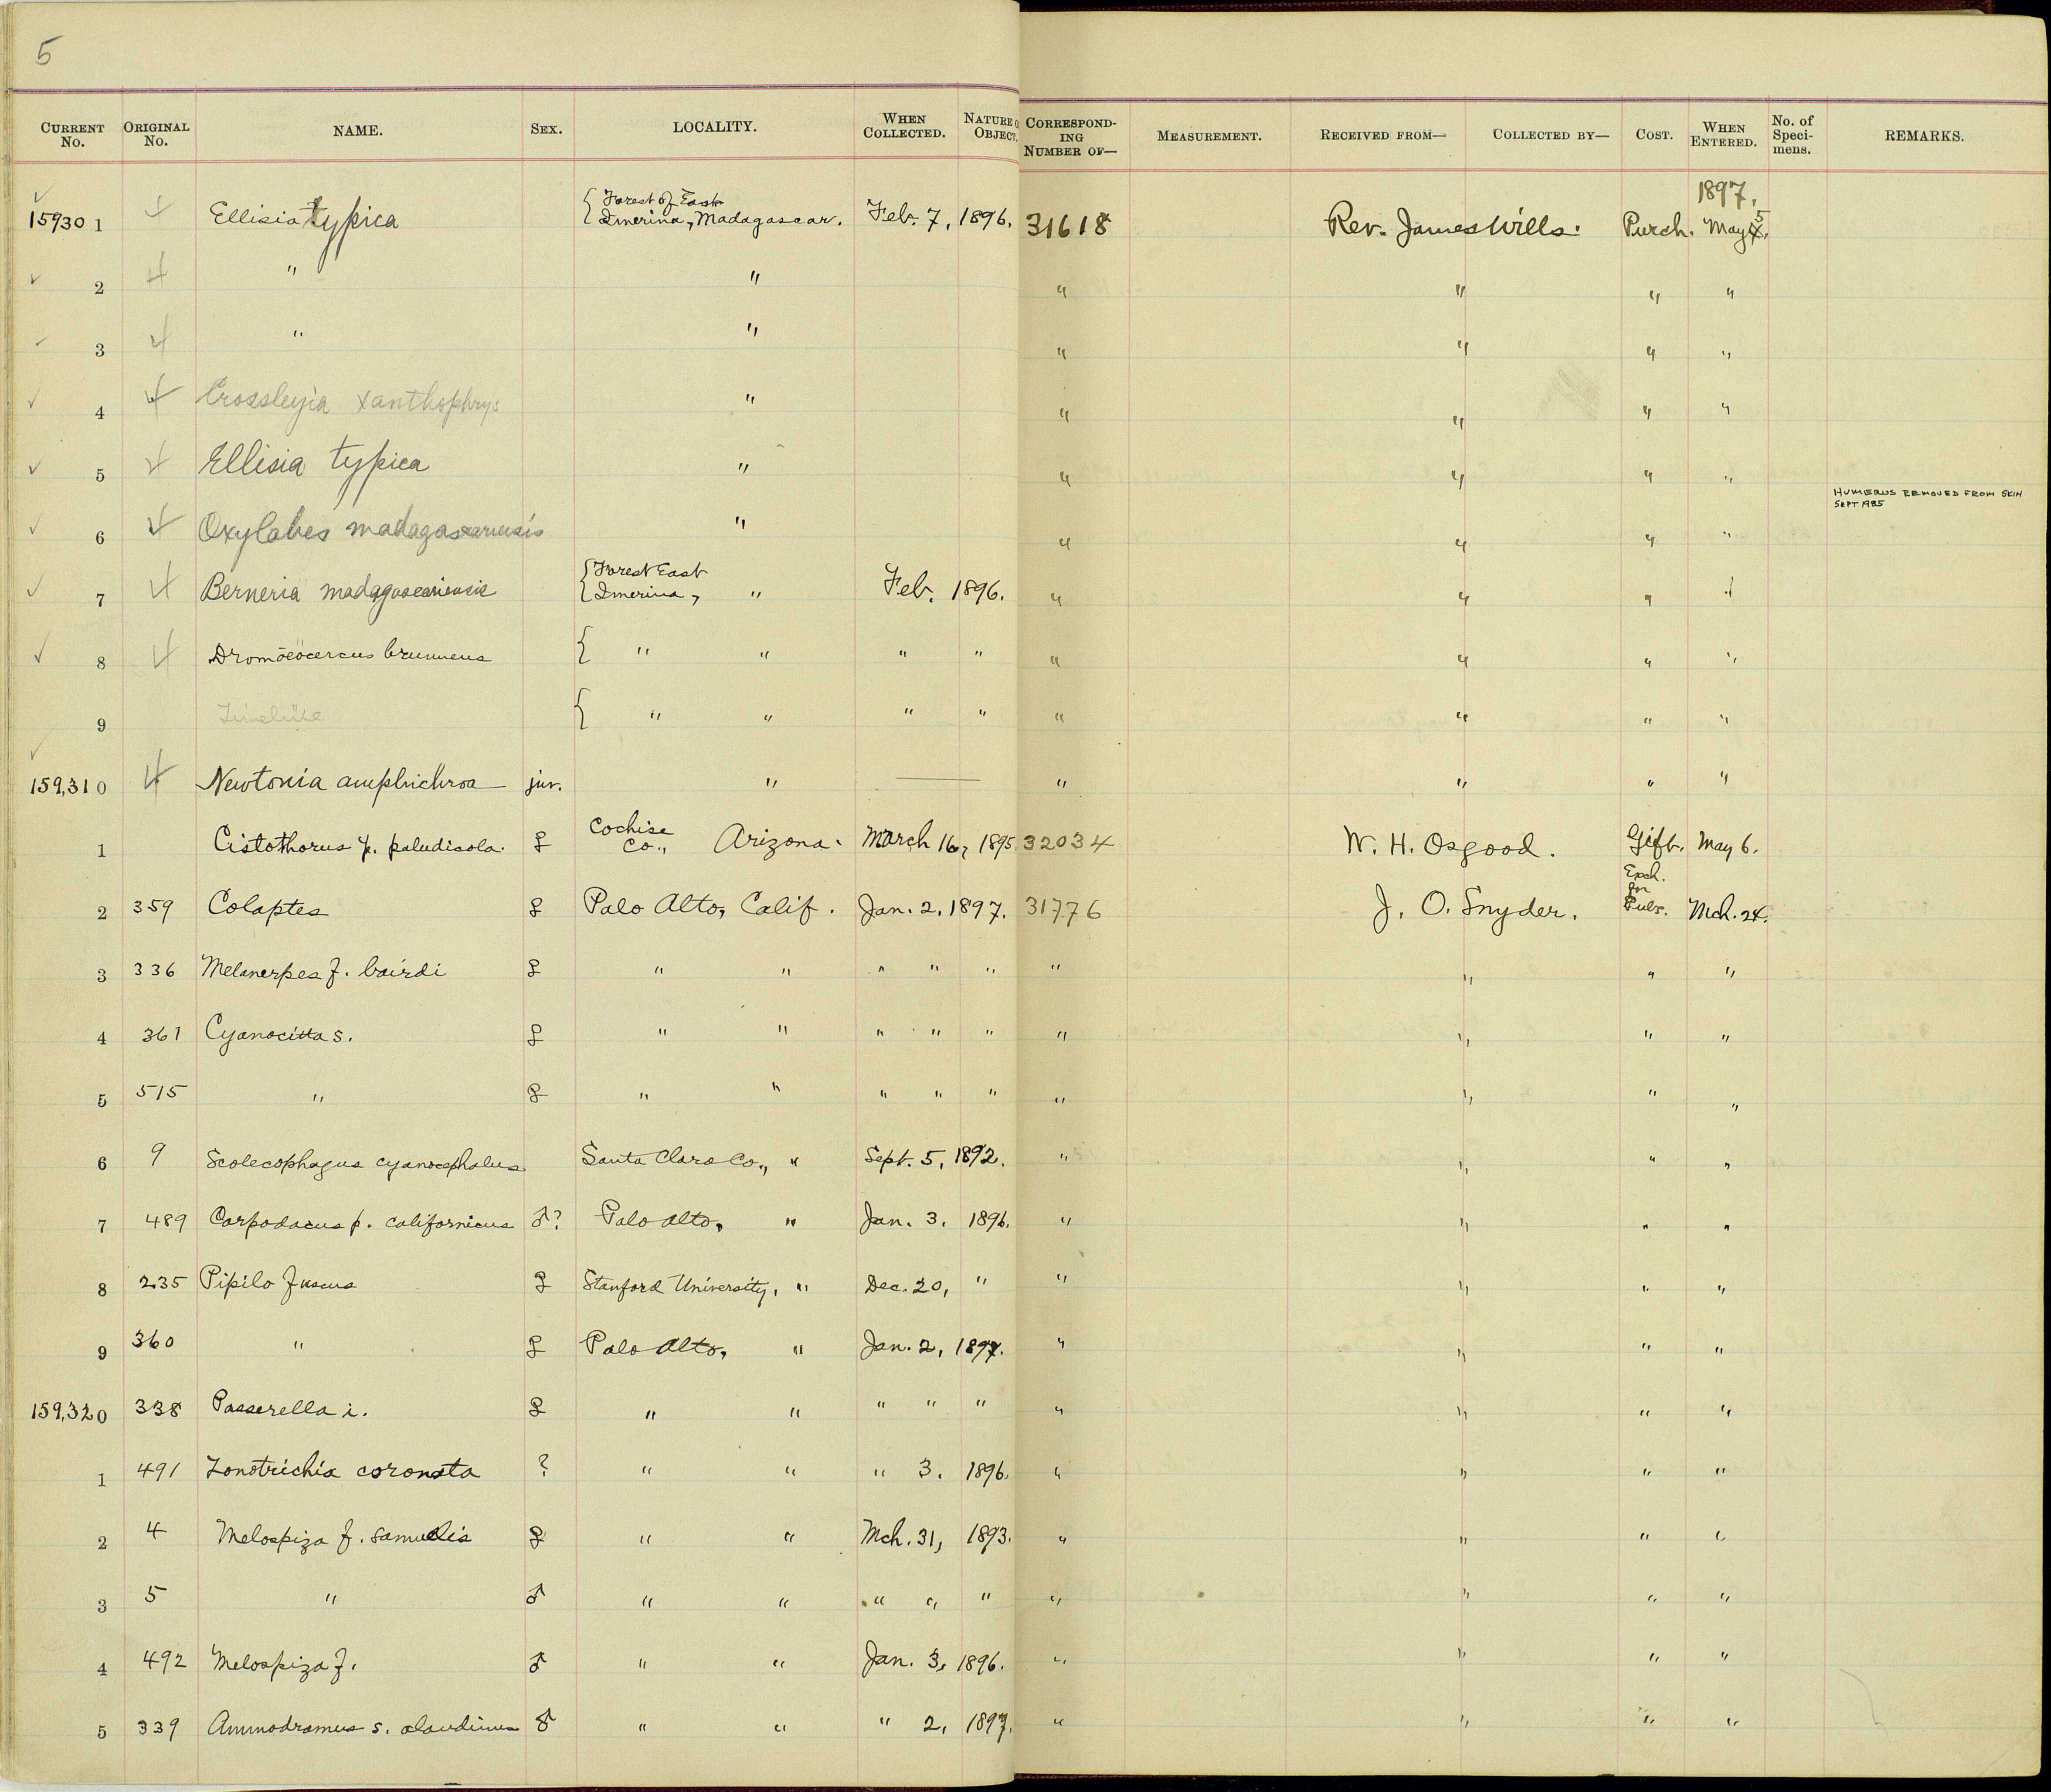 5
CURRENT No. ORIGINAL No. NAME. SEX. LOCALITY. WHEN COLLECTED. NATURE OF OBJECT. CORRESPONDING NUMBER OF— MEASUREMENT. RECEIVED FROM— COLLECTED BY— COST. WHEN ENTERED. No. of Specimens. REMARKS.
15930 1 Ellisia typica { Forest of East Imerina, Madagascar. Feb. 7, 1896. 31618 Rev. James Wills. Purch. 1897. May 5.
2 " " " " " "
3 " " " " " "
4 Crossleyia xanthophrys " " " " "
5 Ellisia typica " " " " "
HUMERUS REMOVED FROM SKIN SEPT 1985
6 Oxylabes madagascariensis " " " " "
7 Berneria madagascariensis { Forest East Imerina, " Feb. 1896. " " " "
8 Dromœocercus brunneus { " " " " " " " "
9 { " " " " " " " "
159,310 Newtonia amphichroa juv. " — " " " "
1 Cistothorus p. paludicola. ♀ Cochise Co., Arizona. March 16, 1895 32034 W. H. Osgood. Gift. May 6.
2 359 Colaptes ♀ Palo Alto, Calif. Jan. 2, 1897. 31776 J. O. Snyder. Exch. for Pubs. Mch. 24.
3 336 Melanerpes f. bairdi ♀ " " " " " " " " "
4 361 Cyanocitta s. ♀ " " " " " " " " "
5 515 " ♀ " " " " " " " " "
6 9 Scolecophagus cyanocephalus Santa Clara Co., " Sept. 5, 1892. " " " "
7 489 Carpodacus p. californicus ♂? Palo Alto, " Jan. 3. 1896. " " " "
8 235 Pipilo fuscus ♀ Stanford University, " Dec. 20, " " " " "
9 360 " ♀ Palo Alto, " Jan. 2, 1897. " " " "
159,320 338 Passerella i. ♀ " " " " " " " " "
1 491 Zonotrichia coronata ? " " " 3. 1896. " " " "
2 4 Melospiza f. samuelis ♀ " " Mch. 31, 1893. " " " "
3 5 " ♂ " " " " " " " " "
4 492 Melospiza f. ♂ " " Jan. 3, 1896. " " " "
5 339 Ammodramus s. alaudinus ♂ " " " 2, 1897. " " " "